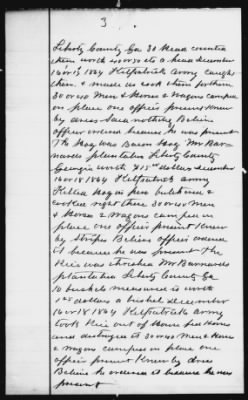 3
Liberty County Ga 30 Head counted
them worth
December
14 or 15 1864 Kilpatrick army caught
them & made us cook them for them
30 or 40 Men & Horses & Wagons camped
on place one officer present Knew
by dress Said nothing Believe
officer ordered because he was present
The Hog was Bacon Hog Mr Bar-
nards plantation Liberty County
Georgia worth $15 00 dollars december
14 or 15 1864 Kilpatricks army
Killed hog in pen butchered &
cooked right there 30 or 40 Men
& Horses & Wagons camped on
place one officer present Knew
by Stripes Believe officer ordered
it because he was present The
Rice was threshed Mr Barnards
plantation Liberty County Ga
10 bushels measured is worth
1 00 dollars a bushel december
14 or 15 1864 Kilpatricks army
took Rice out of House fed Horses
and destroyed it 30 or 40 Men & Horses
& wagons camped on place one
officer present Knew by dress
Believe he ordered it because he was
present